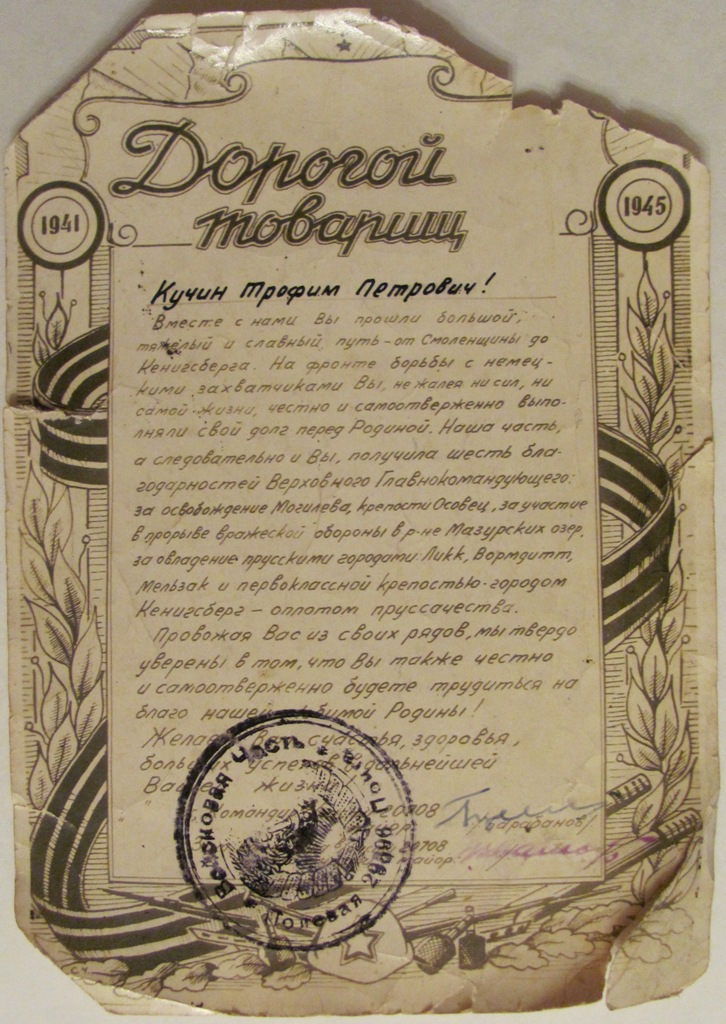 1941
1945
Дорогой
товарищ
Кучин Трофим Петрович!
Вместе с нами Вы прошли большой,
тяжёлый и славный путь - от Смоленщины до
Кенигсберга. На фронте борьбы с немец-
кими захватчиками Вы, не жалея ни сил, ни
самой жизни, честно и самоотверженно выпо-
лняли свой долг перед Родиной. Наша часть,
а следовательно и Вы, получила шесть бла-
годарностей Верховного Главнокомандующего:
за освобождение Могилева, крепости Осовец, за участие
в прорыве вражеской обороны в р-не Мазурских озер,
за овладение прусскими городами:Ликк, Вормдитт,
Мельзак и первоклассной крепостью-городом
Кенигсберг — оплотом пруссачества.
Провожая Вас из своих рядов, мы твердо
уверены в том, что Вы также честно
и самоотверженно будете трудиться на
благо нашей любимой Родины!
Желаем Вам счастья, здоровья,
больших успехов в дальнейшей
Вашей жизни!
20708
/Барабанов/
20708
майор
Войсковая Часть * Полевая Почта